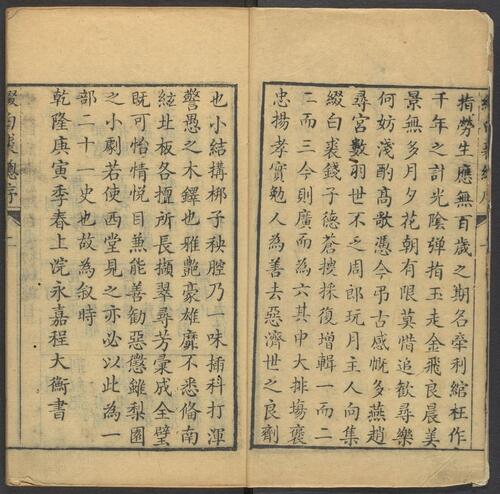 綴白裘總序
指勞生應無百歲之期名牽利綰枉作
千年之計光陰弹指玉走金飛良晨美
景無多月夕花朝有限莫惜追歡尋樂
何妨淺酌高歌憑今弔古感慨多燕趙
尋宮數羽世不乏周郎玩月主人向集
綴白裘錢子德蒼搜採復增輯一而二
二而三今則廣而為六其中大排塲褒
忠揚孝實勉人為善去惡濟世之良劑
也小結搆梆子秧腔乃一味插科打渾
警愚之木鐸也雅艷豪雄靡不悉偹南
絃北板各擅所長擷翠尋芳彙成全璧
既可怡情悦目兼能善勸惡懲雖梨園
之小劇若使西堂見之亦必以此為一
部二十一史也故為叙時
乾隆庚寅季春上浣永嘉程大衡書
綴白裘總序